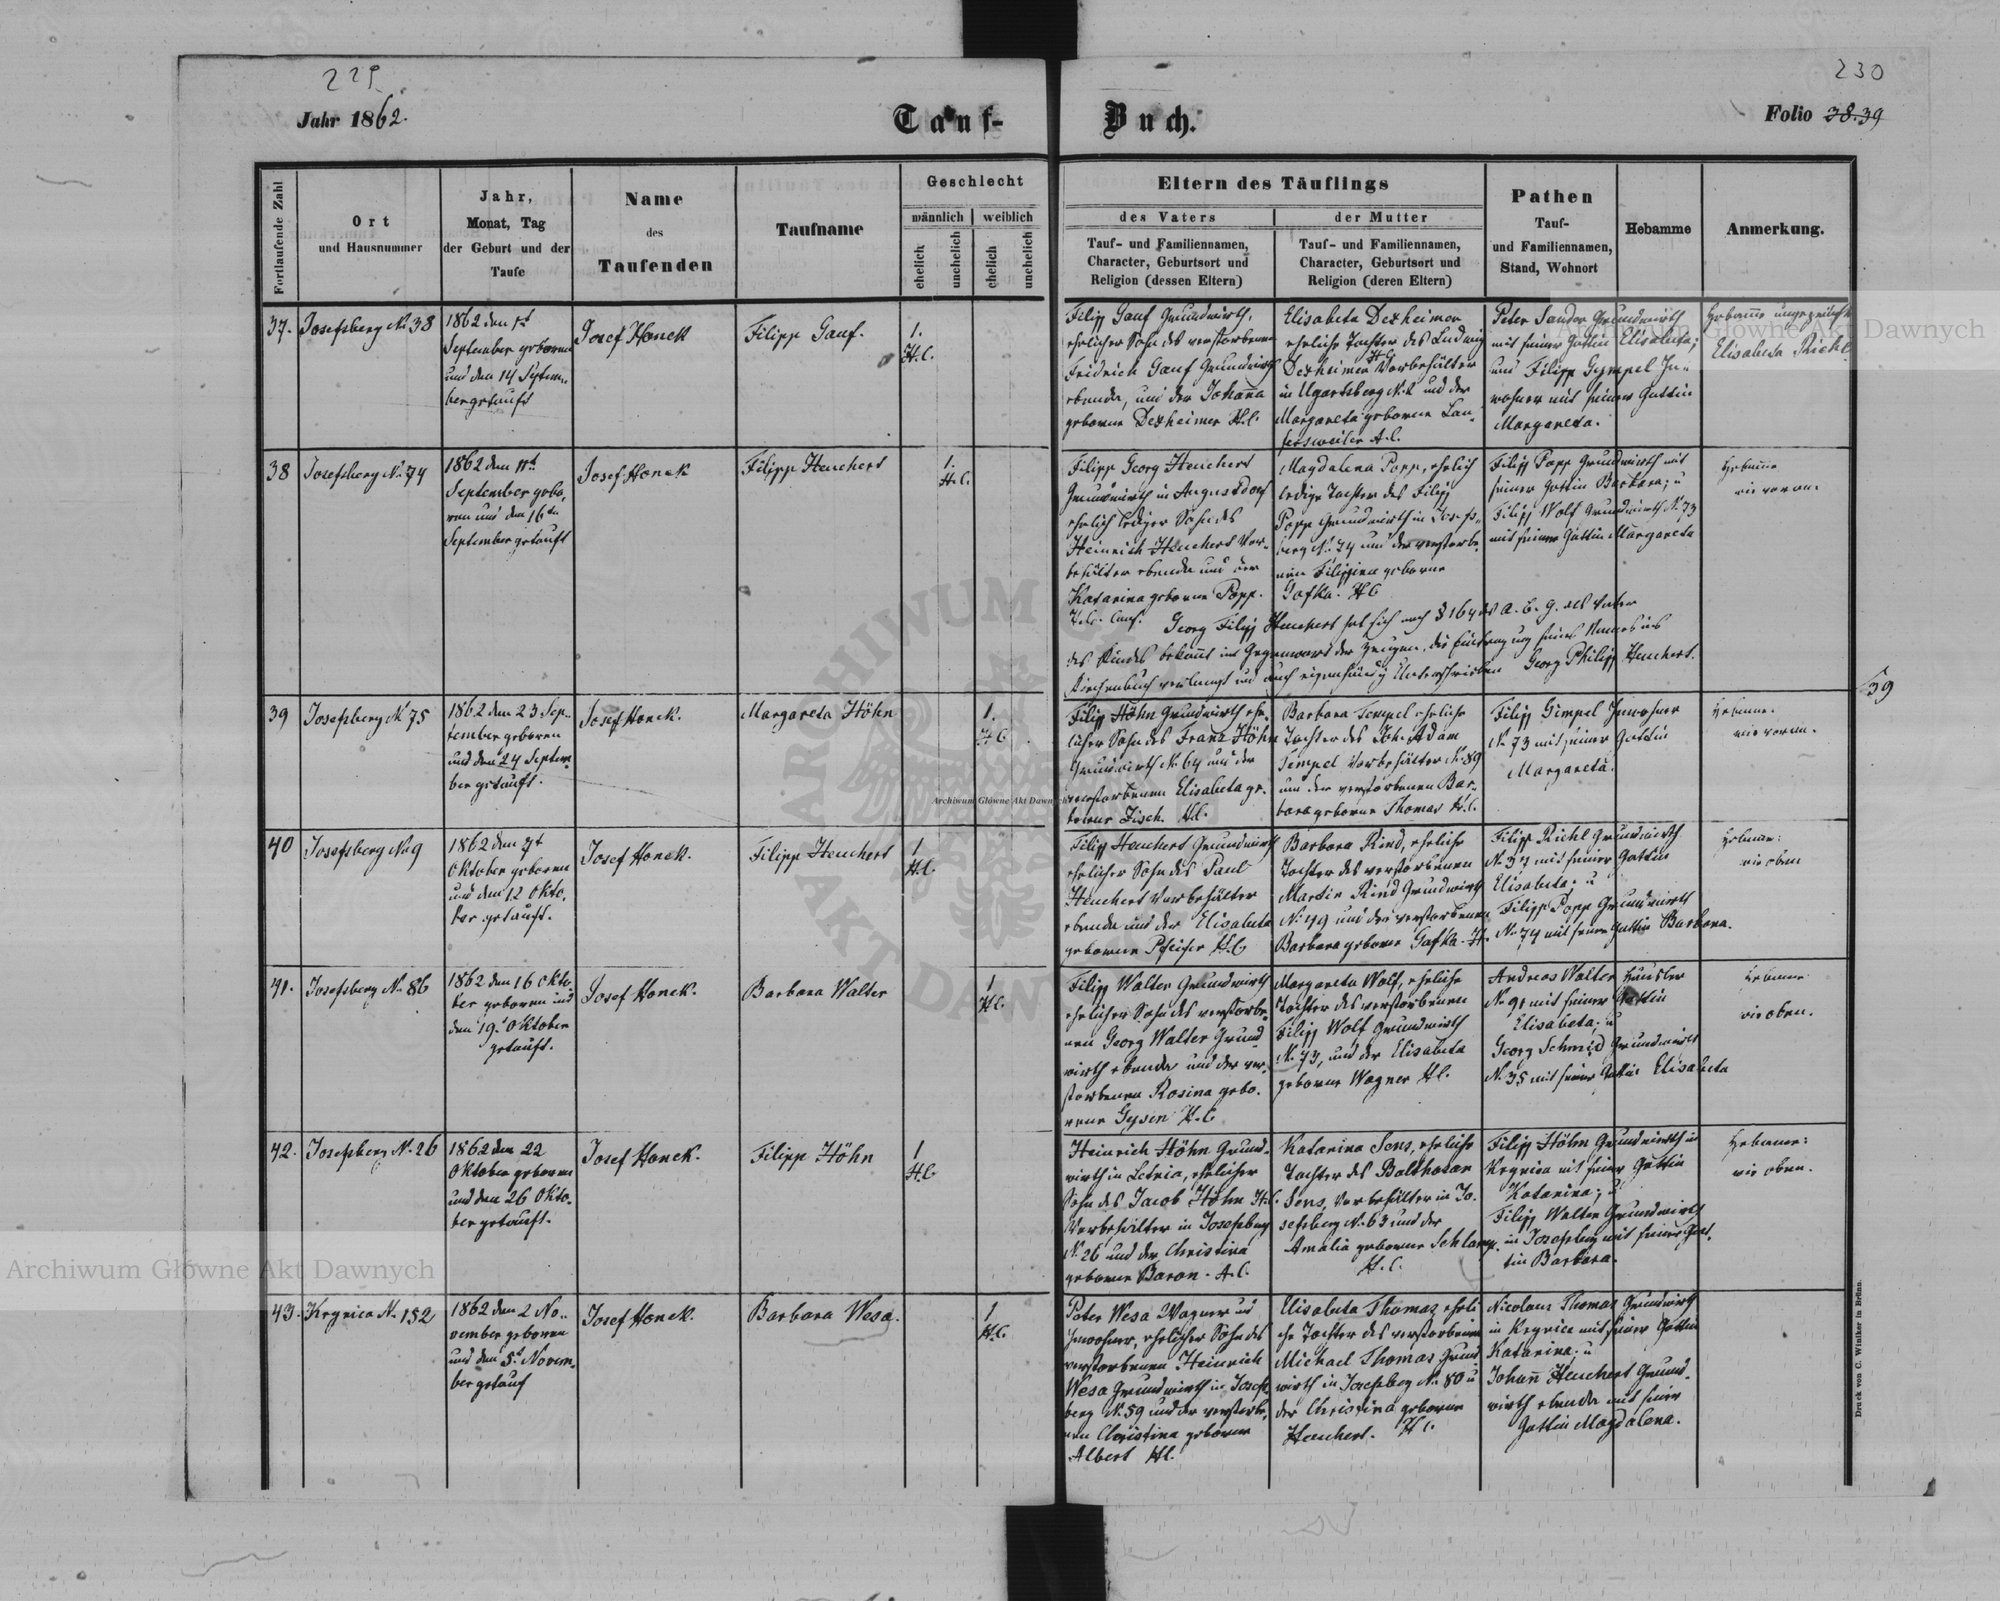 229
230
Jahr 1862.
Tauf-
Buch.
Folio 38.39
Fortlaufende Zahl
Ort
und Hausnummer
Jahr,
Monat, Tag
der Geburt und der
Taufe
Name
des
Taufenden
Taufname
Geschlecht
männlich
weiblich
ehelich
unehelich
ehelich
unehelich
Eltern des Täuflings
des Vaters
Tauf- und Familiennamen,
Character, Geburtsort und
Religion (dessen Eltern)
der Mutter
Tauf- und Familiennamen,
Character, Geburtsort und
Religion (deren Eltern)
Pathen
Tauf-
und Familiennamen,
Stand, Wohnort
Hebamme
Anmerkung.
37.
Josefsberg No 38
1862 den 1st
September geboren
und den 14 Septem-
ber getauft
Josef Honek
Filipp Gauf.
1.
H.C.
Filipp Gauf Grundwirth,
ehelicher Sohn des verstorbenen
Fridrich Gauf Grundwirth
ebenda, und der Johanna
geborne Dexheimer H.C.
Elisabeta Dexheimer
eheliche Tochter des Ludwig
Dexheimer H.C. Vorbehälter
in Ugartsberg No 2 und der
Margareta geborne Lau-
fersweiler A.C.
Peter Sander Grundwirth
mit seiner Gattin Elisabeta;
und Filipp Gympel In-
wohner mit seiner Gattin
Margareta.
Hebamme ungeprüft
Elisabeta Richl
38
Josefsberg No 74
1862 den 11t
September gebo-
ren und den 16ten
September getauft
Josef Honek
Filipp Heuchert
1.
H.C.
Filipp Georg Heuchert
Grundwirth in Augustdorf
ehelich lediger Sohn des
Heinrich Heuchert Vor-
behälter ebenda und der
Katarina geborne Popp.
H. C. Conf.
Magdalena Popp, ehelich
ledige Tochter des Filipp
Popp Grundwirth in Josefs-
berg No 74 und der verstorbe-
nen Filippina geborne
Gafka. H C
Filipp Popp Grundwirth mit
seiner Gattin Barbara; u
Filipp Wolf Grundwirth No 73
mit seiner Gattin Margareta
Hebamme
wie voran.
Georg Filipp Heuchert hat sich nach § 164 des a. b. G. als Vater
des Kindes bekannt in Gegenwart der Zeugen, die Eintragung seines Namens ins
Kirchenbuch verlangt und auch eigenhändig Unterschrieben Georg Philipp Heuchert.
39
39
Josefsberg No 75
1862 den 23 Sep-
tember geboren
und den 24 Septem-
ber getauft.
Josef Honek.
Margareta Höhn
1.
H C
Filipp Höhn Grundwirth ehe-
licher Sohn des Franz Höhn
Grundwirth No 64 und der
verstorbenen Elisabeta ge-
borene Zisch. H.C.
Barbara Tempel eheliche
Tochter des Joh. Adam
Tempel Vorbehälter No 89
und der verstorbenen Bar-
bara geborne Thomas H.C.
Filipp Gimpel Inwohner
No 73 mit seiner Gattin
Margareta.
Hebamme.
wie voran.
40
Josefsberg No 9
1862 den 7t
Oktober geboren
und den 12 Okto-
ber getauft.
Josef Honek.
Filipp Heuchert
1
H.C.
Filipp Heuchert Grundwirth
ehelicher Sohn des Paul
Heuchert Vorbehälter
ebenda und der Elisabeta
geborene Pfeifer H.C.
Barbara Rind, eheliche
Tochter des verstorbenen
Martin Rind Grundwirth
No 49 und der verstorbenen
Barbara geborne Gafka. H.
Filipp Richl Grundwirth
No 37 mit seiner Gattin
Elisabeta; u
Filipp Popp Grundwirth
No 74 mit seiner Gattin Barbara.
Hebamme:
wie oben
41.
Josefsberg No 86
1862 den 16 Okto-
ber geboren und
den 19t Oktober
getauft.
Josef Honek.
Barbara Walter
1
H.C.
Filipp Walter Grundwirth
ehelicher Sohn des verstorbe-
nen Georg Walter Grund-
wirth ebenda und der ver-
storbenen Rosina gebo-
rene Gysin H.C.
Margareta Wolf, eheliche
Tochter des verstorbenen
Filipp Wolf Grundwirth
No 73, und der Elisabeta
geborne Wagner H.C.
Andreas Walter Häusler
No 91 mit seiner Gattin
Elisabeta; u
Georg Schmid Grundwirth
No 35 mit seiner Gattin Elisabeta
Hebamme
wie oben.
42.
Josefsberg No 26
1862 den 22
Oktober geboren
und den 26 Okto-
ber getauft.
Josef Honek.
Filipp Höhn
1
H.C.
Heinrich Höhn Grund-
wirth in Letnia, ehelicher
Sohn des Jacob Höhn H.C.
Vorbehälter in Josefsberg
No 26 und der Christina
geborne Baron. A.C.
Katarina Sens, eheliche
Tochter des Balthasar
Sens, Vorbehälter in Jo-
sefsberg No 63 und der
Amalia geborne Schlamp.
H.C.
Filipp Höhn Grundwirth in
Krynica mit seiner Gattin
Katarina; u
Filipp Walter Grundwirth
in Josefsberg mit seiner Gat-
tin Barbara.
Hebamme:
wie oben.
43.
Krynica No 152
1862 den 2 No-
vember geboren
und den 5t Novem-
ber getauf
Josef Honek.
Barbara Wesa.
1
H.C.
Peter Wesa Wagner und
Inwohner, ehelicher Sohn des
verstorbenen Heinrich
Wesa Grundwirth in Josefs-
berg No 59 und der verstorbe-
nen Christina geborne
Albert H.C.
Elisabeta Thomas eheli-
che Tochter des verstorbenen
Michael Thomas Grund-
wirth in Josefsberg No 80 u
der Christina geborne
Heuchert. H C.
Nicolaus Thomas Grundwirth
in Krynica mit seiner Gattin
Katarina; u
Johann Heuchert Grund-
wirth ebenda mit seiner
Gattin Magdalena.
Druck von C. Winiker in Brünn.
Archiwum Główne Akt Dawnych
Archiwum Główne Akt Dawnych
Archiwum Główne Akt Dawnych
ARCHIWUM G
AKT DAWN